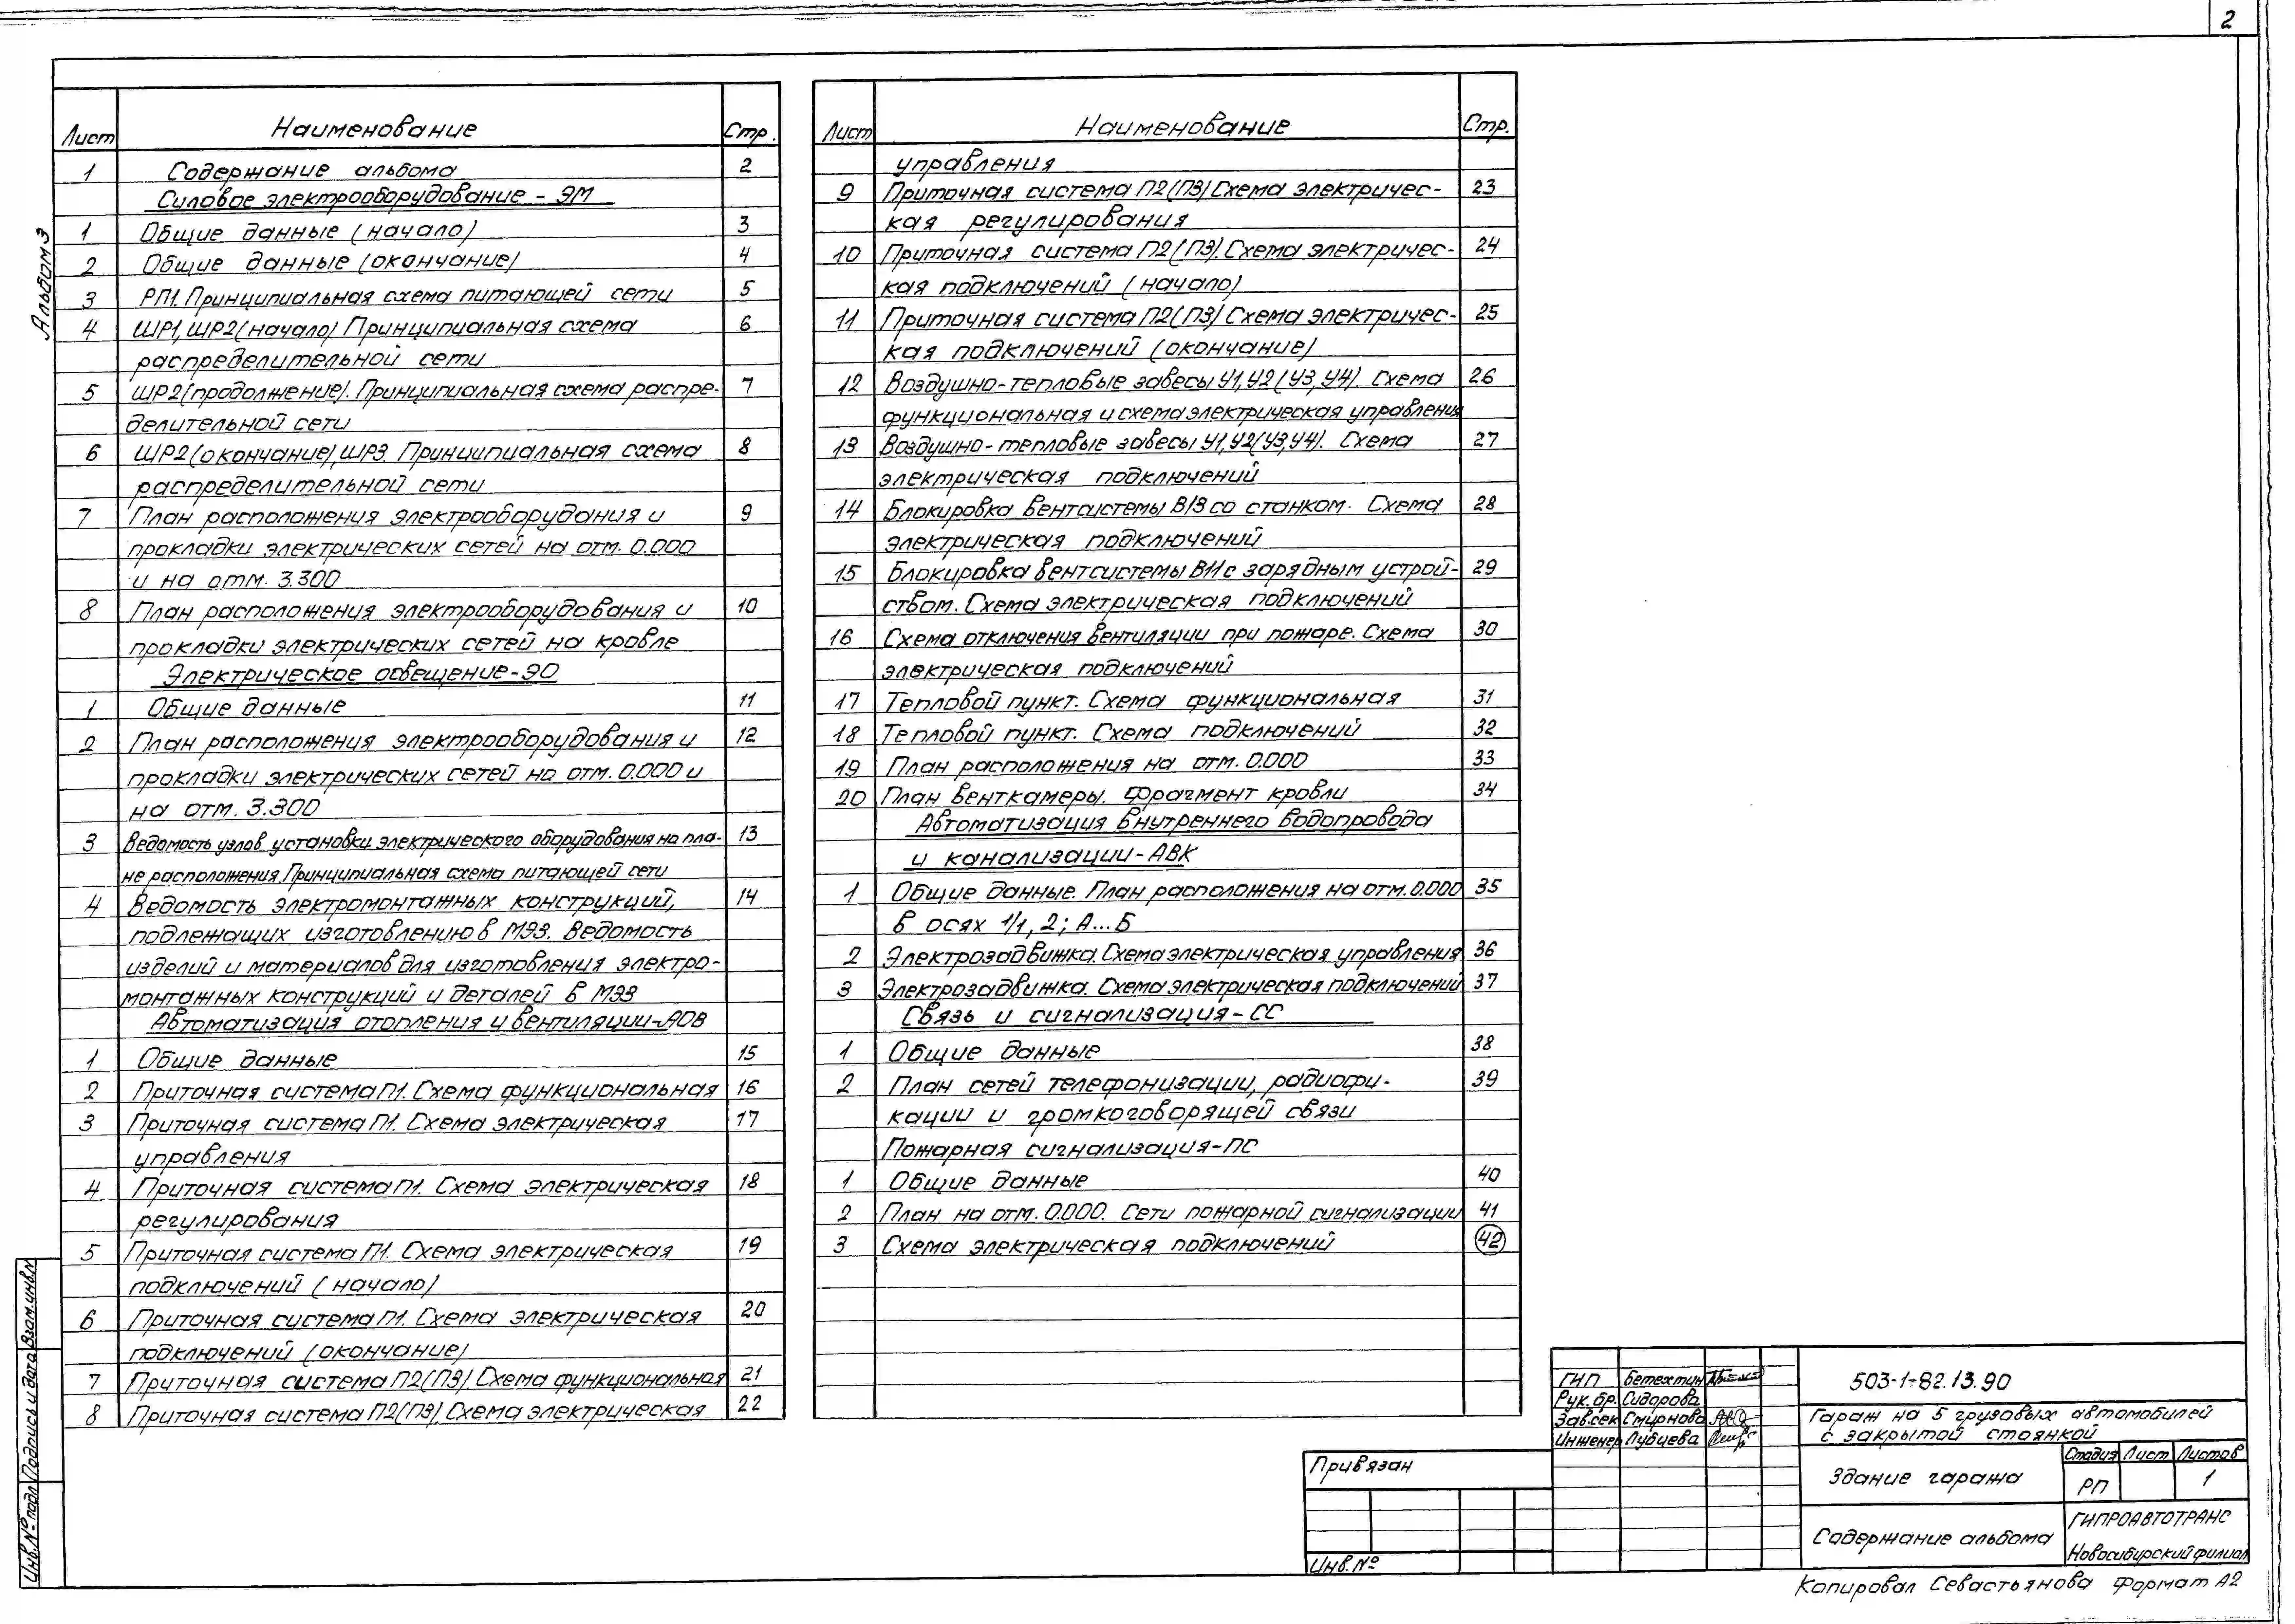 2
Альбом 3
Лист Наименование Стр.
1 Содержание альбома 2
Силовое электрооборудование - ЭМ
1 Общие данные (начало) 3
2 Общие данные (окончание) 4
3 РП1. Принципиальная схема питающей сети 5
4 ШР1, ШР2 (начало) Принципиальная схема 6
распределительной сети
5 ШР2 (продолжение). Принципиальная схема распре- 7
делительной сети
6 ШР2 (окончание), ШР3. Принципиальная схема 8
распределительной сети
7 План расположения электрооборудания и 9
прокладки электрических сетей на отм. 0.000
и на отм. 3.300
8 План расположения электрооборудования и 10
прокладки электрических сетей на кровле
Электрическое освещение-ЭО
1 Общие данные 11
2 План расположения электрооборудования и 12
прокладки электрических сетей на отм. 0.000 и
на отм. 3.300
3 Ведомость узлов установки электрического оборудования на пла- 13
не расположения. Принципиальная схема питающей сети
4 Ведомость электромонтажных конструкций, 14
подлежащих изготовлению в МЭЗ. Ведомость
изделий и материалов для изготовления электро-
монтажных конструкций и деталей в МЭЗ
Автоматизация отопления и вентиляции-АОВ
1 Общие данные 15
2 Приточная система П1. Схема функциональная 16
3 Приточная система П1. Схема электрическая 17
управления
4 Приточная система П1. Схема электрическая 18
регулирования
5 Приточная система П1. Схема электрическая 19
подключений (начало)
6 Приточная система П1. Схема электрическая 20
подключений (окончание)
7 Приточная система П2(П3). Схема функциональная 21
8 Приточная система П2(П3). Схема электрическая 22
Лист Наименование Стр.
управления
9 Приточная система П2(П3) Схема электричес- 23
кая регулирования
10 Приточная система П2(П3). Схема электричес- 24
кая подключений (начало)
11 Приточная система П2(П3) Схема электричес- 25
кая подключений (окончание)
12 Воздушно-тепловые завесы У1, У2 (У3, У4). Схема 26
функциональная и схема электрическая управления
13 Воздушно-тепловые завесы У1, У2(У3, У4). Схема 27
электрическая подключений
14 Блокировка вентсистемы В13 со станком. Схема 28
электрическая подключений
15 Блокировка вентсистемы В11 с зарядным устрой- 29
ством. Схема электрическая подключений
16 Схема отключения вентиляции при пожаре. Схема 30
электрическая подключений
17 Тепловой пункт. Схема функциональная 31
18 Тепловой пункт. Схема подключений 32
19 План расположения на отм. 0.000 33
20 План венткамеры. Фрагмент кровли 34
Автоматизация внутреннего водопровода
и канализации-АВК
1 Общие данные. План расположения на отм. 0.000 35
в осях 1/1, 2; А...Б
2 Электрозадвижка. Схема электрическая управления 36
3 Электрозадвижка. Схема электрическая подключений 37
Связь и сигнализация-СС
1 Общие данные 38
2 План сетей телефонизации, радиофи- 39
кации и громкоговорящей связи
Пожарная сигнализация-ПС
1 Общие данные 40
2 План на отм. 0.000. Сети пожарной сигнализации 41
3 Схема электрическая подключений 42
Взам. инв. №
Подпись и дата
Инв. № подл
Привязан
Инв. №
ГИП Бетехтин
Рук. бр. Сидорова
Зав. сек Смирнова
Инженер Лубцева
503-1-82.13.90
Гараж на 5 грузовых автомобилей
с закрытой стоянкой
Здание гаража
Стадия Лист Листов
РП 1
Содержание альбома
ГИПРОАВТОТРАНС
Новосибирский филиал
Копировал Севастьянова Формат А2